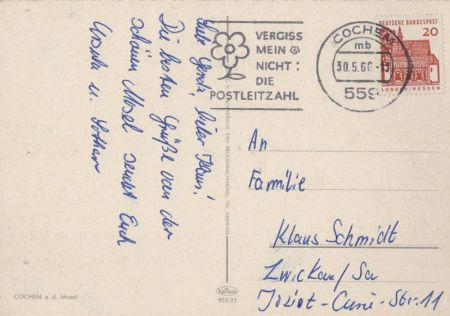 Liebe Gerda, lieber Klaus!
Die besten Grüße von der
schönen Mosel sendet Euch
Ursula u. Lothar
VERGISS
MEIN
NICHT:
DIE
POSTLEITZAHL
COCHEM
mb
30.5.66
559
DEUTSCHE BUNDESPOST
20
LORSCH/HESSEN
An
Familie
Klaus Schmidt
Zwickau/Sa
Joliot-Curie-Str. 11
COCHEM a. d. Mosel
955/23